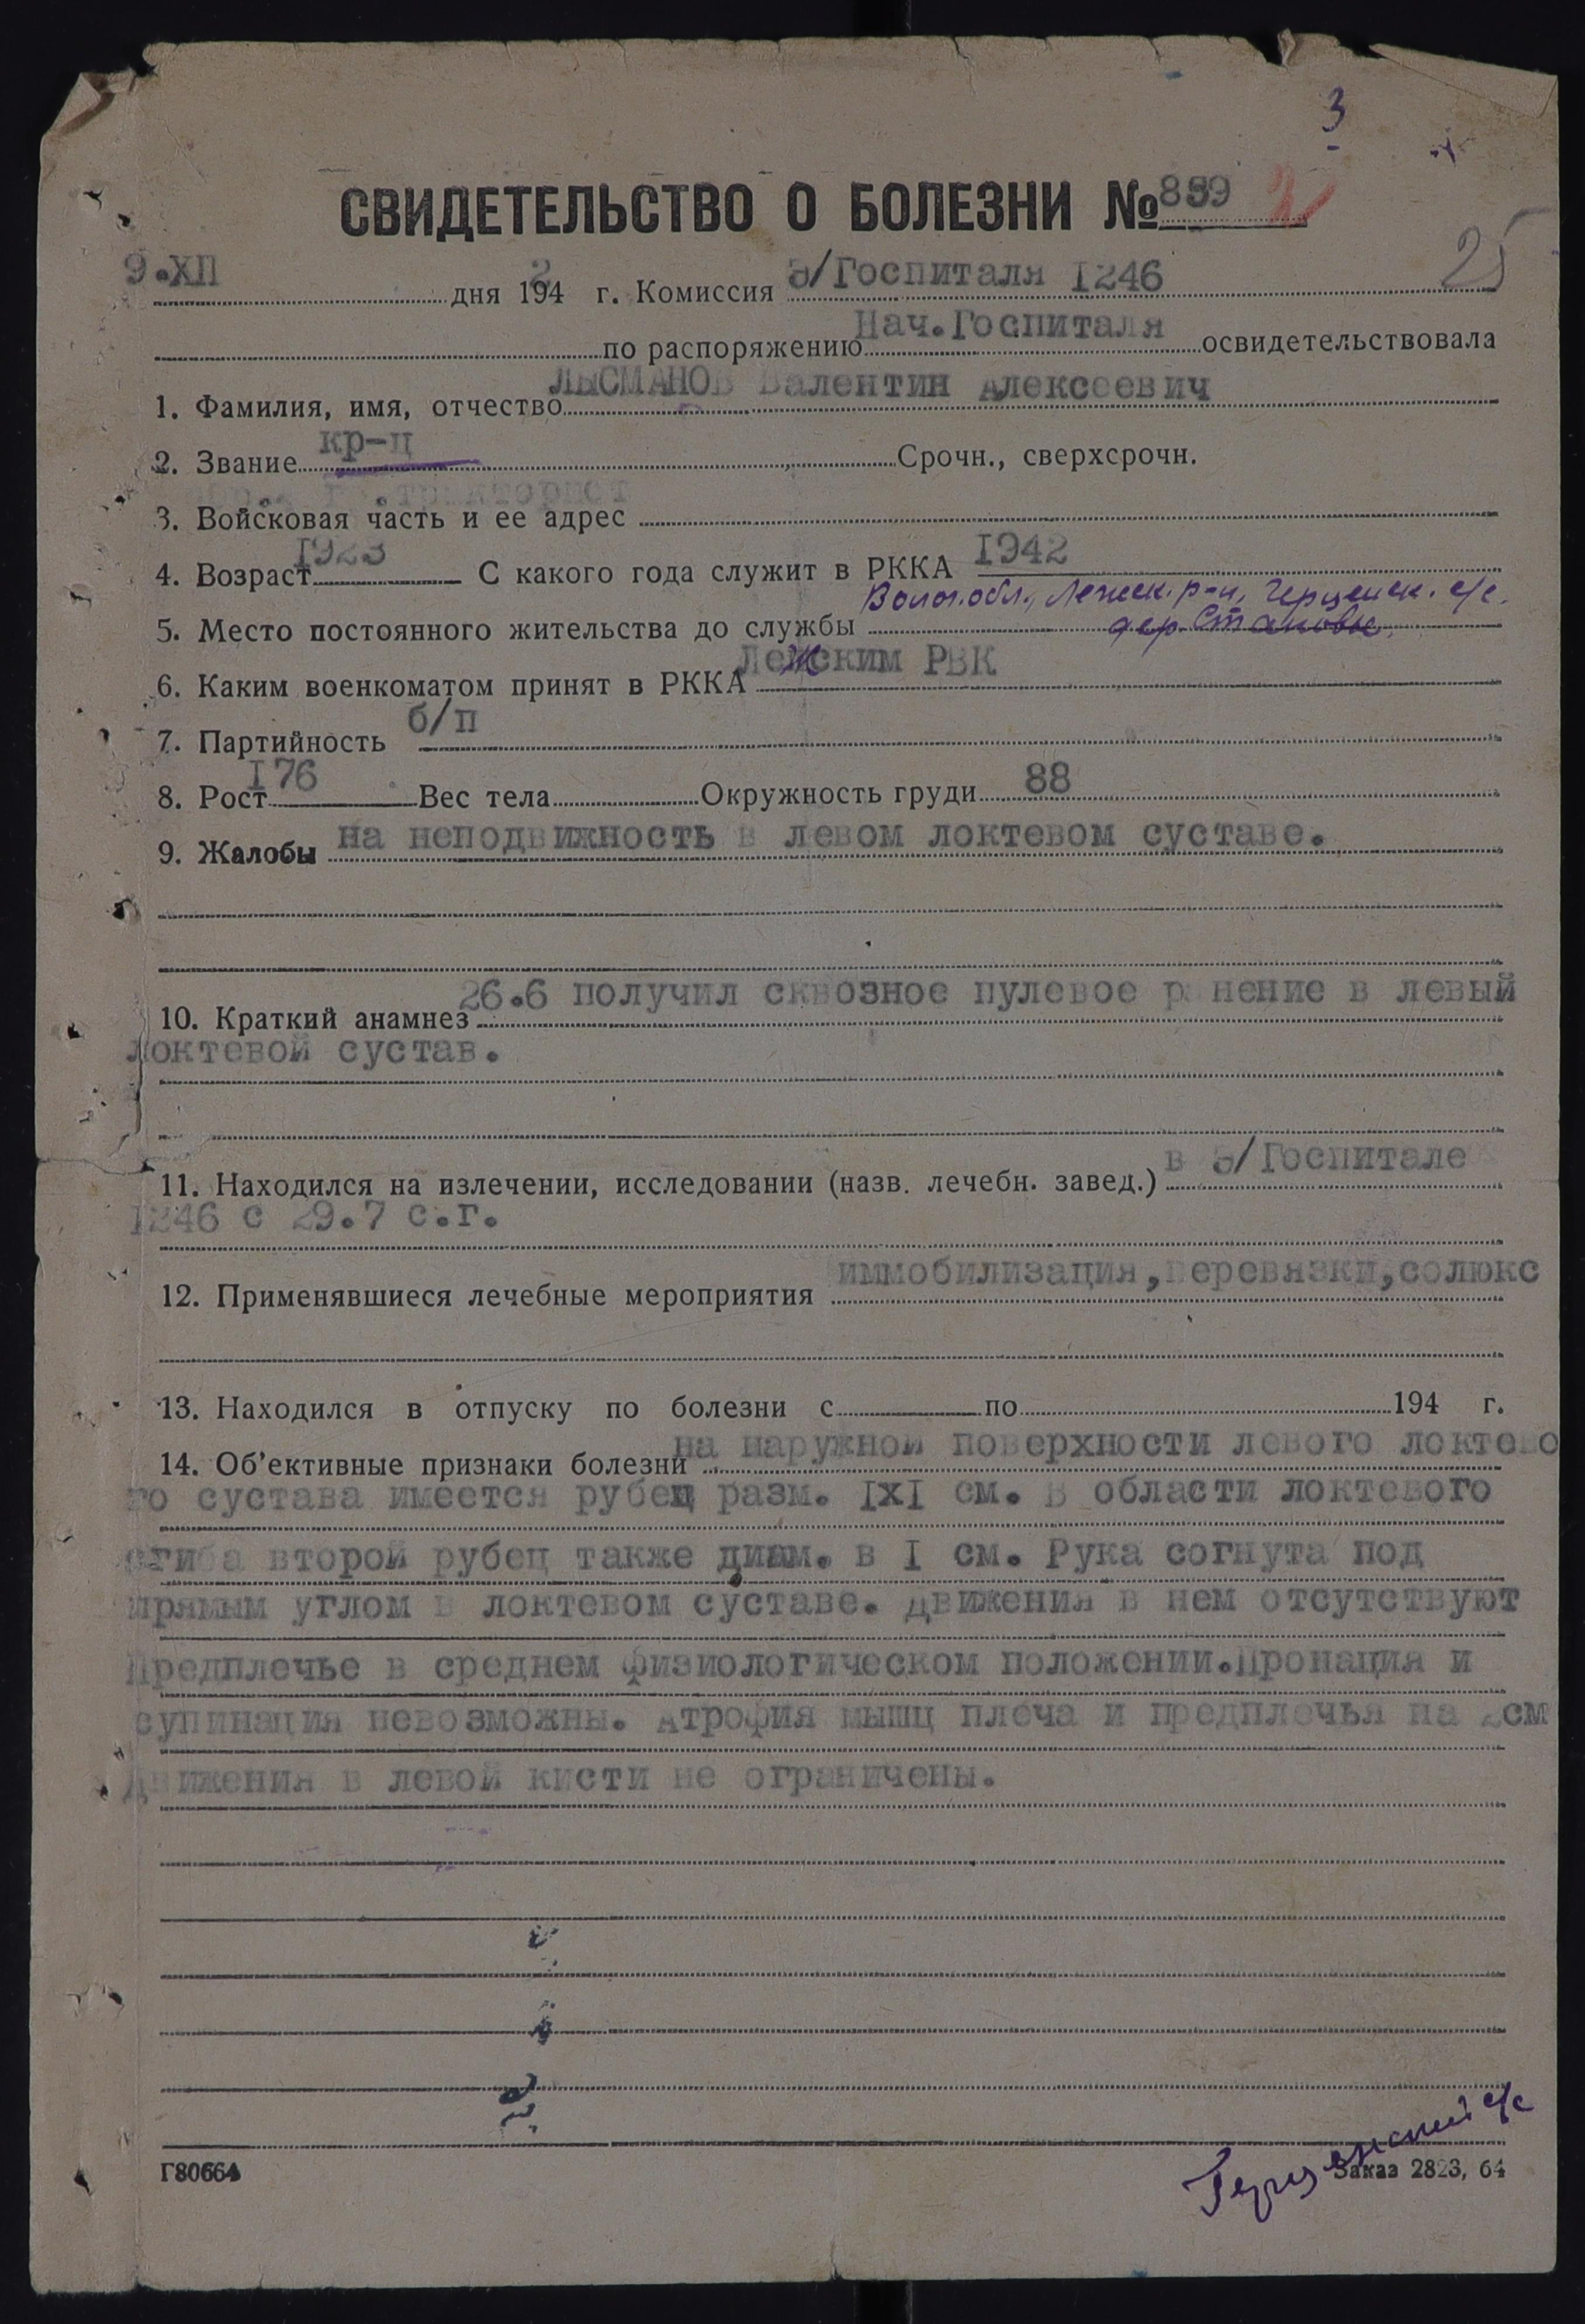 3
СВИДЕТЕЛЬСТВО О БОЛЕЗНИ № 859 2
25
9.XП дня 1942 г. Комиссия Э/Госпиталя I246
по распоряжению Нач.Госпиталя освидетельствовала
1. Фамилия, имя, отчество ЛЫСМАНОВ Валентин Алексеевич
2. Звание кр-ц Срочн., сверхсрочн.
тракторист
3. Войсковая часть и ее адрес
4. Возраст I923 С какого года служит в РККА I942
Волог.обл., Лежск. р-н, Герценск. с/с.
5. Место постоянного жительства до службы дер. Становое
6. Каким военкоматом принят в РККА Лежским РВК
7. Партийность б/п
8. Рост I76 Вес тела Окружность груди 88
9. Жалобы на неподвижность в левом локтевом суставе.
10. Краткий анамнез 26.6 получил сквозное пулевое ранение в левый
локтевой сустав.
11. Находился на излечении, исследовании (назв. лечебн. завед.) в Э/Госпитале
I246 с 29.7 с.г.
12. Применявшиеся лечебные мероприятия иммобилизация, перевязки, солюкс
13. Находился в отпуску по болезни с по 194 г.
14. Об'ективные признаки болезни на наружной поверхности левого локтево
го сустава имеется рубец разм. IхI см. В области локтевого
сгиба второй рубец также диам. в I см. Рука согнута под
прямым углом в локтевом суставе. Движения в нем отсутствуют
Предплечье в среднем физиологическом положении.Пронация и
супинация невозможны. Атрофия мышц плеча и предплечья на 2см
Движения в левой кисти не ограничены.
Герценский с/с
Г80664 Заказ 2823, 64